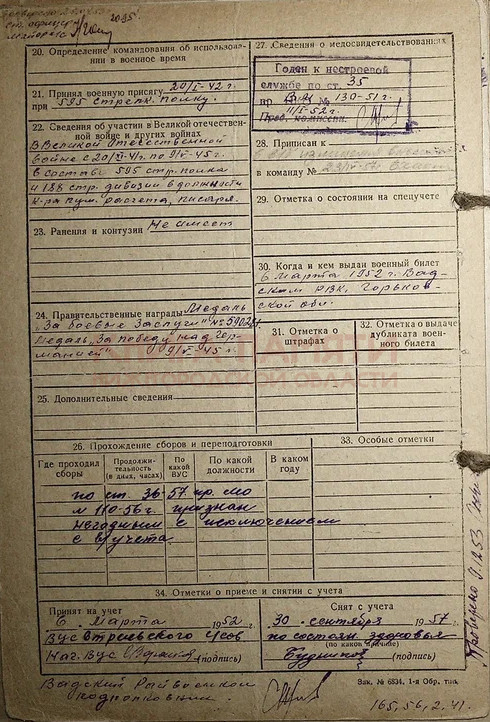 20. Определение командования об использова-
нии в военное время
21. Принял военную присягу 20/I-42 г.
при 595 стрелк. полку.
22. Сведения об участии в Великой отечествен-
ной войне и других войнах
В Великой Отечественной
войне с 20/XI-41г. по 9/V-45 г.
в составе 595 стр. полка
и 188 стр. дивизии в должности
к-ра пул. расчета, писаря.
23. Ранения и контузии Не имеет
24. Правительственные награды Медаль
„За боевые заслуги"
Медаль „За победу над Гер-
манией" 9/V-45 г.
25. Дополнительные сведения
27. Сведения о медосвидетельствованиях
Годен к нестроевой
службе по ст. 35
пр № 130-51г.
Пред. комиссии
28. Приписан к
в команду №
29. Отметка о состоянии на спецучете
30. Когда и кем выдан военный билет
6 Марта 1952 г. Вад-
ским РВК, Горьков-
ской обл.
31. Отметка о
штрафах
32. Отметка о выдаче
дубликата воен-
ного билета
26. Прохождение сборов и переподготовки
Где проходил
сборы
Продолжи-
тельность
(в днях, часах)
По
какой
ВУС
По какой
должности
В каком
году
по ст. 36-57 пр. мо
№ 110-56г. признан
негодным с исключением
с в/учета
33. Особые отметки
34. Отметки о приеме и снятии с учета
Принят на учет
6 Марта 1952 г.
ВУС
Нач. ВУС (подпись)
Снят с учета
30 сентября 1957 г.
по состоян. здоровья
(по какой причине)
(подпись)
Вадский Райвоенком
подполковник
Зак. № 6834. 1-я Обр. тип.
165, 56, 2. 41.